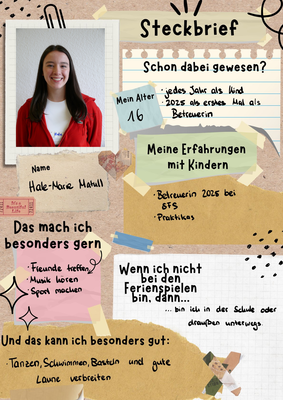 Steckbrief
Schon dabei gewesen?
· jedes Jahr als Kind
· 2025 als erstes Mal als
Betreuerin
Mein Alter
16
Meine Erfahrungen
mit Kindern
· Betreuerin 2025 bei
SFS
· Praktikas
Name
Hale-Marie Matull
Das mach ich
besonders gern
· Freunde treffen
· Musik hören
· Sport machen
Wenn ich nicht
bei den
Ferienspielen
bin, dann...
... bin ich in der Schule oder
draußen unterwegs.
Und das kann ich besonders gut:
· Tanzen, Schwimmen, Basteln und gute
Laune verbreiten